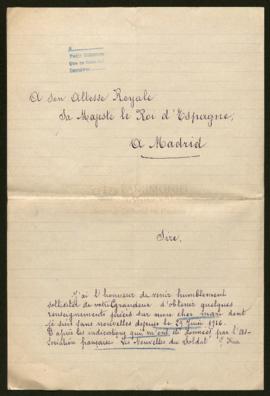 A son Altesse Royale
Sa Majesté le Roi d'Espagne,
A Madrid
Sire,
J'ai l'honneur de venir humblement
solliciter de votre Grandeur d'obtenir quelques
renseignements précis sur mon cher mari dont
je suis sans nouvelles depuis le 29 Juin 1916.
D'après les indications qui m'ont été données par l'As-
sociation française "Les Nouvelles du Soldat"